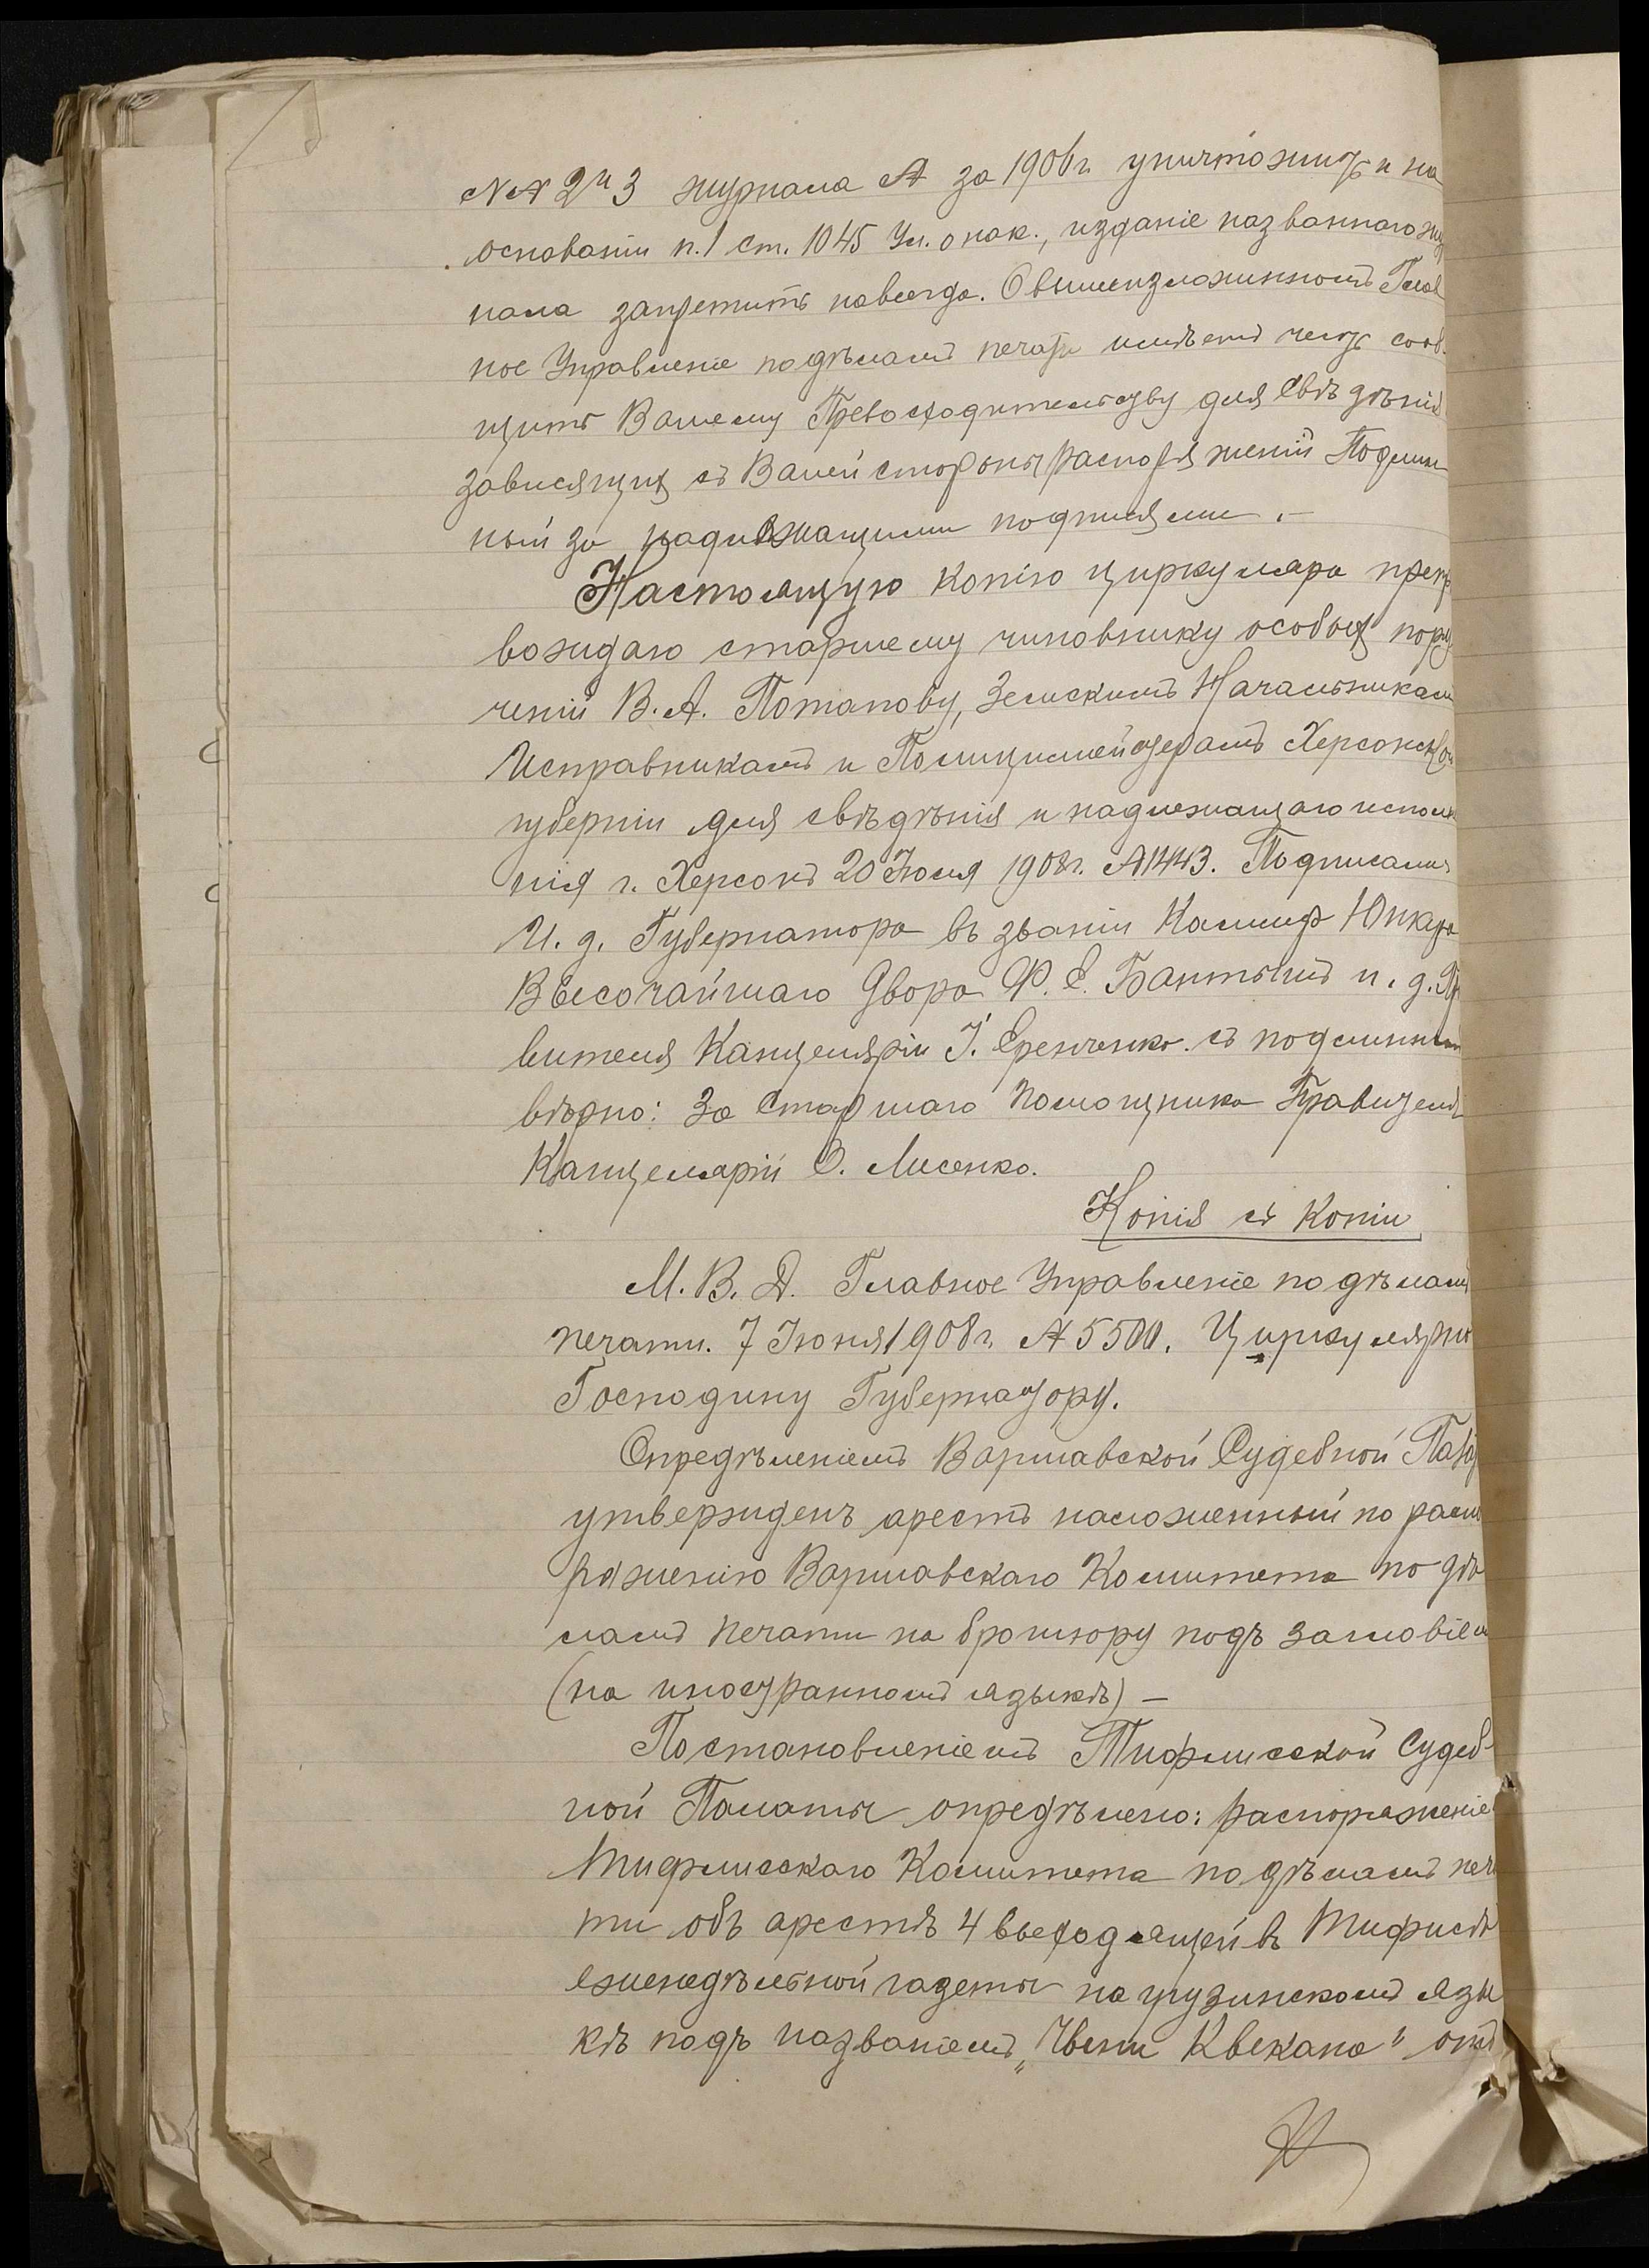 №№ 2 и 3 журнала № за 1906 г. уничтожить и на
основаніи п. 1 ст. 1045 Ул. о нак., изданіе названнаго жур
нала запретить навсегда. О вышеизложенномъ Глав
ное Управленіе по дѣламъ печати имѣетъ честь сооб-
щить Вашему Превосходительству для свѣдѣнія
зависящихъ съ Вашей стороны распоряженій Подлин
ный за надлежащими подписями.-
Настоящую копію циркуляра преп
вождаю старшему чиновнику особых пору
ченій В. А. Потапову, Земскимъ Начальникам
Исправникамъ и Полицмейстерамъ Херсонской
губерніи для свѣдѣнія и надлежащаго исполн
нія г. Херсонъ 20 Іюля 1908 г. № 1443. Подписали:
И. д. Губернатора въ званіи Камер Юнкера
Высочайшаго Двора Ф. С. Бантышъ и. д. Пр
вителя Канцеляріи І. Еременко. съ подлинным
вѣрно: За Старшаго Помощника Правителя
Канцелярій О. Лисенко.
Копія съ копіи
М. В. Д. Главное Управленіе по дѣламъ
печати. 7 Іюня 1908 г. № 5500. Циркулярно
Господину Губернатору.
Опредѣленіемъ Варшавской Судебной Пала
утвержденъ арестъ наложенный по расп
ряженію Варшавскаго Комитета по дѣ
ламъ печати на брошюру подъ заглавіем
(на иностранномъ языкѣ) —
Постановленіемъ Тифлисской Судеб-
ной Палаты опредѣлено: распоряженіе
Тифлисскаго Комитета по дѣламъ печа
ти объ арестѣ 4 выходящей въ Тифлисѣ
еженедѣльной газеты на грузинскомъ язы
кѣ подъ названіемъ „Чвени Квекана" отъ